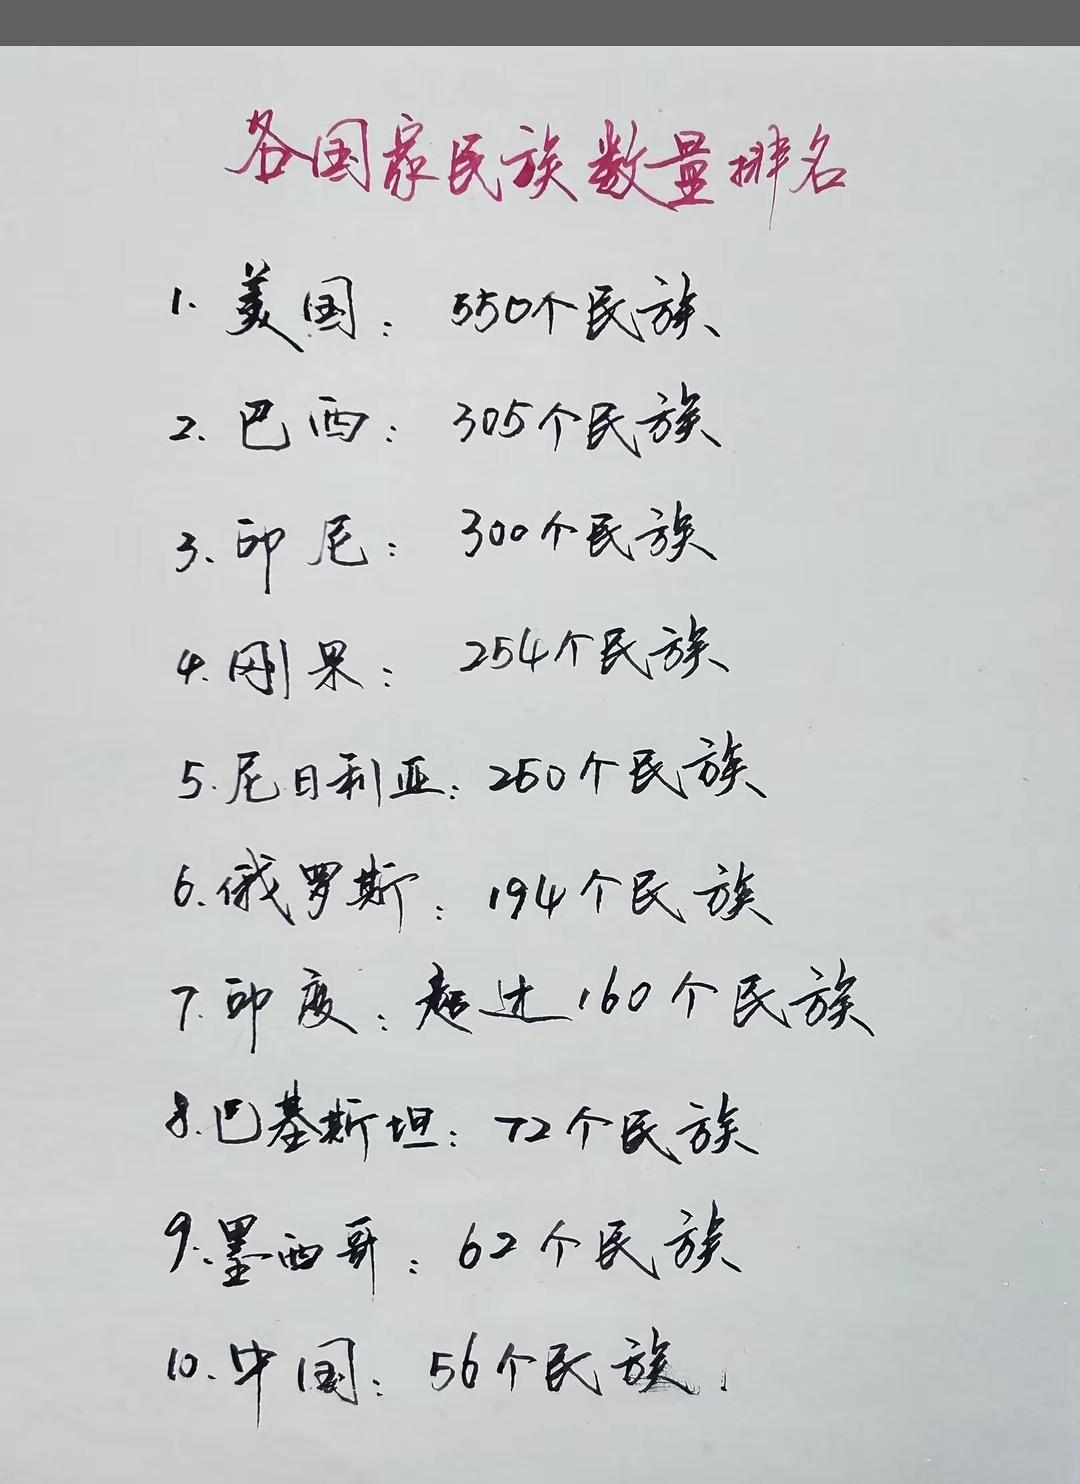 各国家民族数量排名
1. 美国：550个民族
2. 巴西：305个民族
3. 印尼：300个民族
4. 刚果：254个民族
5. 尼日利亚：250个民族
6. 俄罗斯：194个民族
7. 印度：超过160个民族
8. 巴基斯坦：72个民族
9. 墨西哥：62个民族
10. 中国：56个民族.